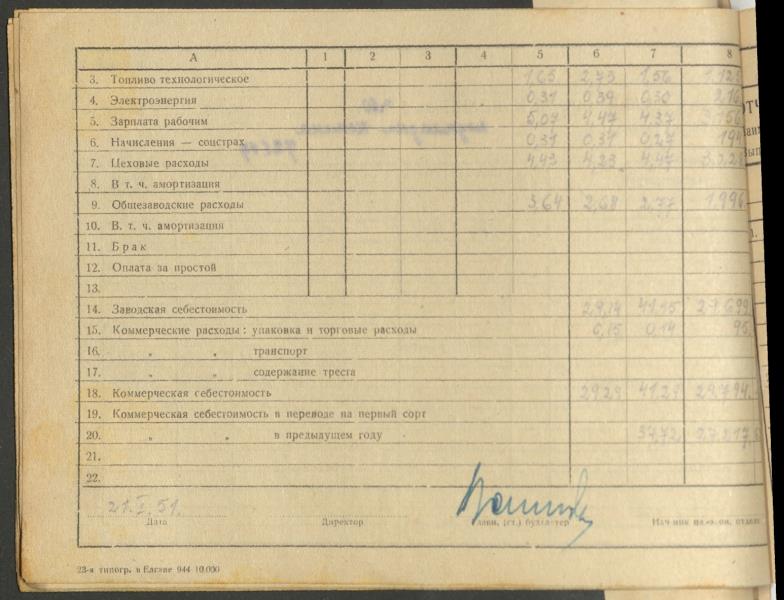 А 1 2 3 4 5 6 7 8
3. Топливо технологическое 1,65 2,73 1,56
4. Электроэнергия 0,31 0,39 0,30
5. Зарплата рабочим 5,07 4,47 4,37
6. Начисления — соцстрах 0,31 0,31 0,27 194
7. Цеховые расходы 4,43 4,23 4,47
8. В т. ч. амортизация
9. Общезаводские расходы 3,64 2,68 2,77 1.996
10. В. т. ч. амортизация
11. Брак
12. Оплата за простой
13.
14. Заводская себестоимость 29,14 41,15 27.699
15. Коммерческие расходы: упаковка и торговые расходы 0,15 0,14 95
16. „ „ транспорт
17. „ „ содержание треста
18. Коммерческая себестоимость 29,29 41,29 27.794
19. Коммерческая себестоимость в переводе на первый сорт
20. „ „ в предыдущем году 37,72 27.217
21.
22.
21. I. 51.
Дата Директор Главн. (ст.) бухгалтер
23-я типогр. в Елгаве 944 10.000